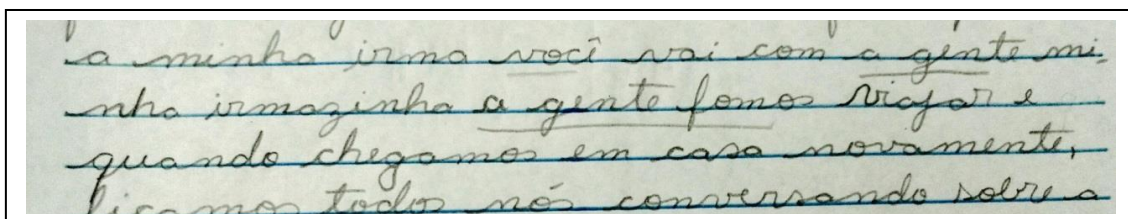 a minha irma você vai com a gente mi-
nha irmazinha a gente fomos viajar e
quando chegamos em casa novamente,
ficamos todos nós conversando sobre a